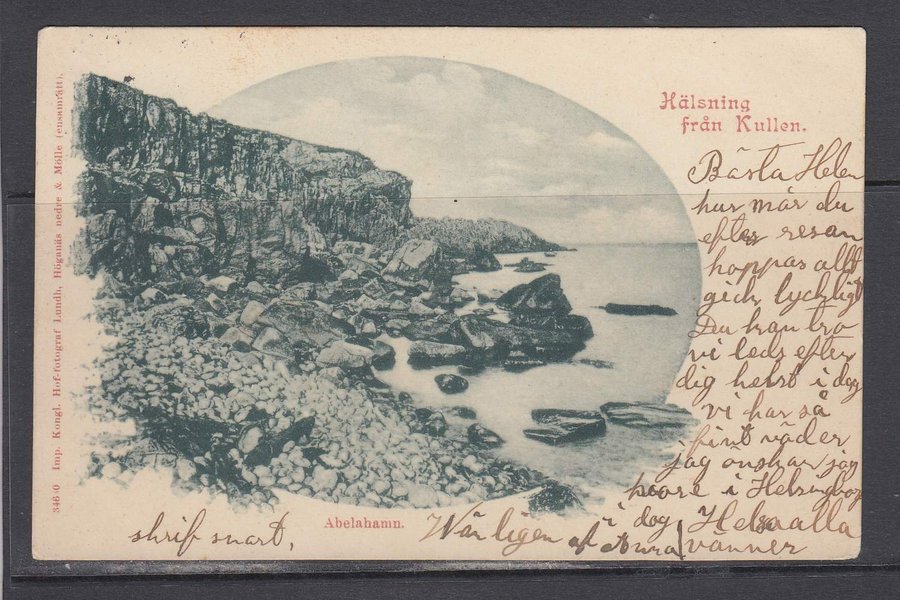 Hälsning
från Kullen.
Bästa Helen
hur mår du
efter resan
hoppas allt
gick lyckligt
Du kan tro
vi leds efter
dig helst i dag
vi har så
fint väder
jag önskar jag
vore i Helsingborg
i dog Helsa alla
vänner
Wärligen af
skrif snart,
Abelahamn.
34640 Imp. Kongl. Hof-fotograf Lundh, Höganäs nedre & Mölle (ensamrätt).